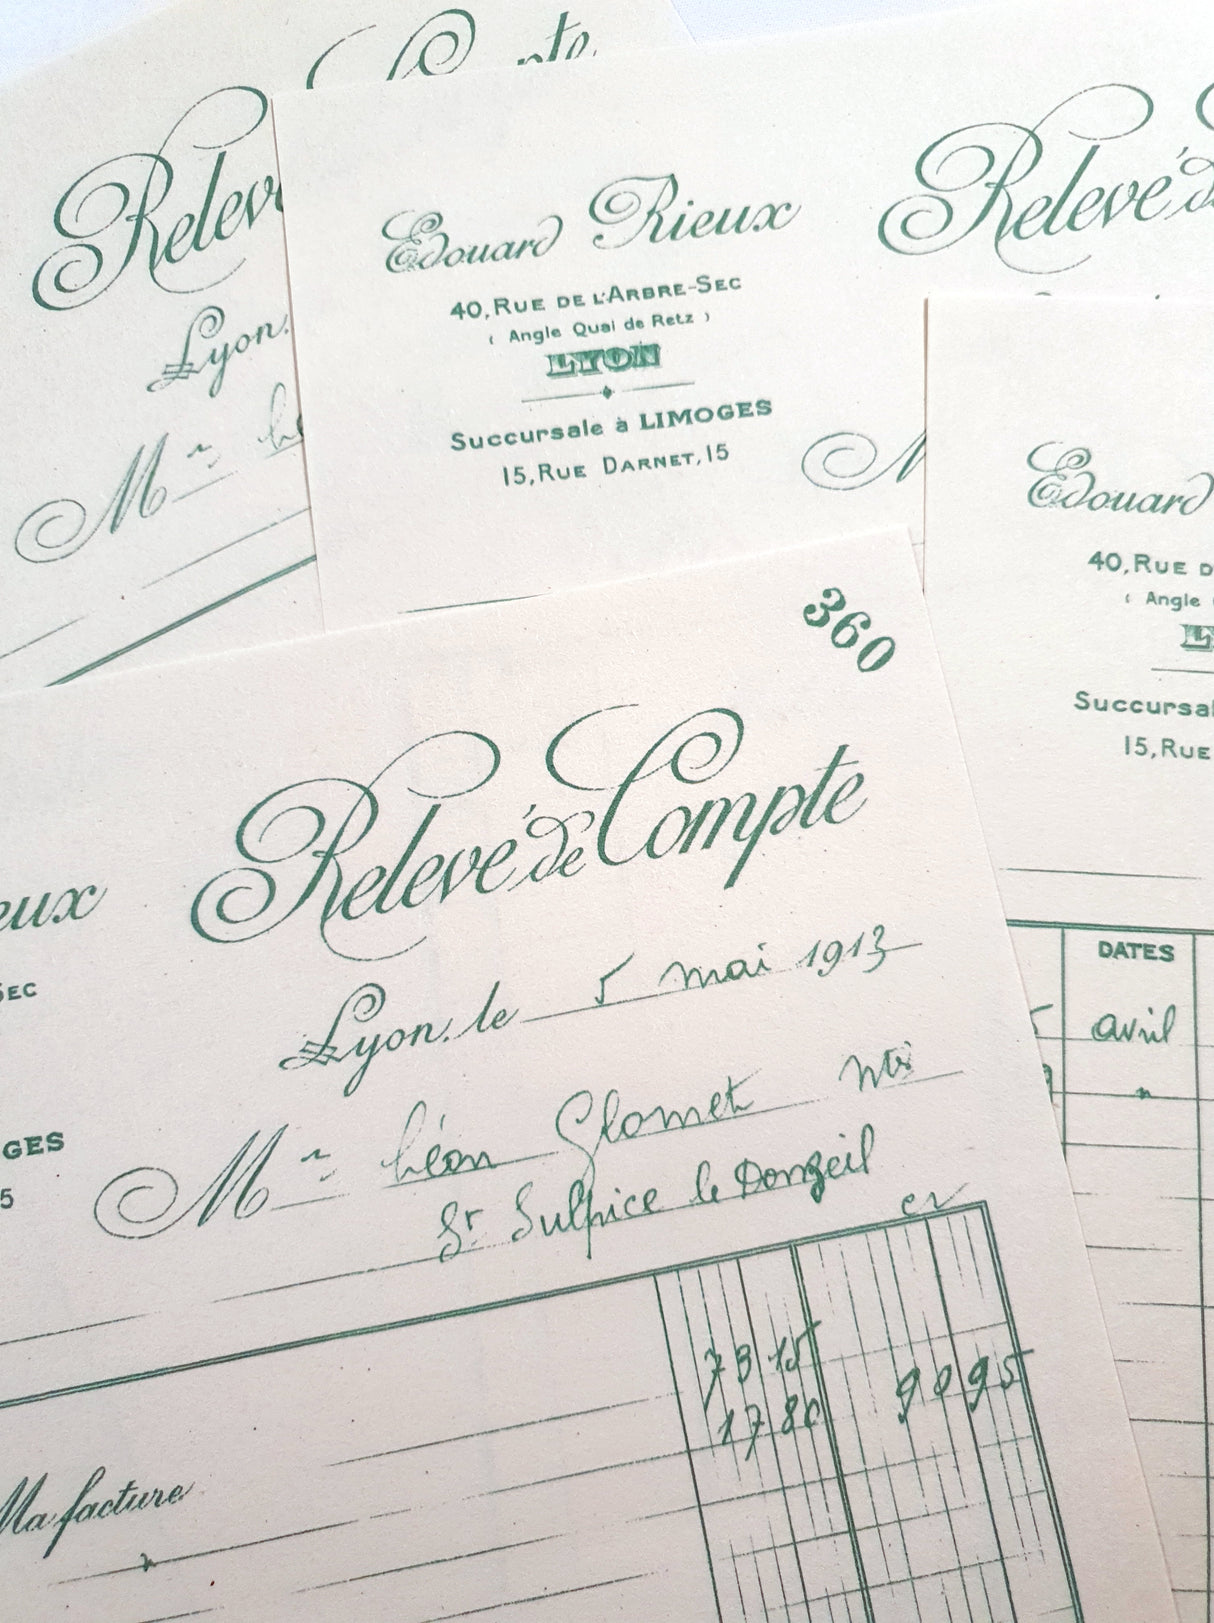 Relevé
Lyon.
Mr Lé
Edouard Rieux
40, RUE DE L'ARBRE-SEC
( Angle Quai de Retz )
LYON
Succursale à LIMOGES
15, RUE DARNET, 15
Relevé de
M
Edouard
40, RUE D
( Angle
Succursal
15, RUE
DATES
avril
"
360
Relevé de Compte
eux
SEC
Lyon, le 5 mai 1913
GES
5
Mr Léon Glomet
St Sulpice le Donzeil
cr
73 15
17 80
90 95
Ma facture
"